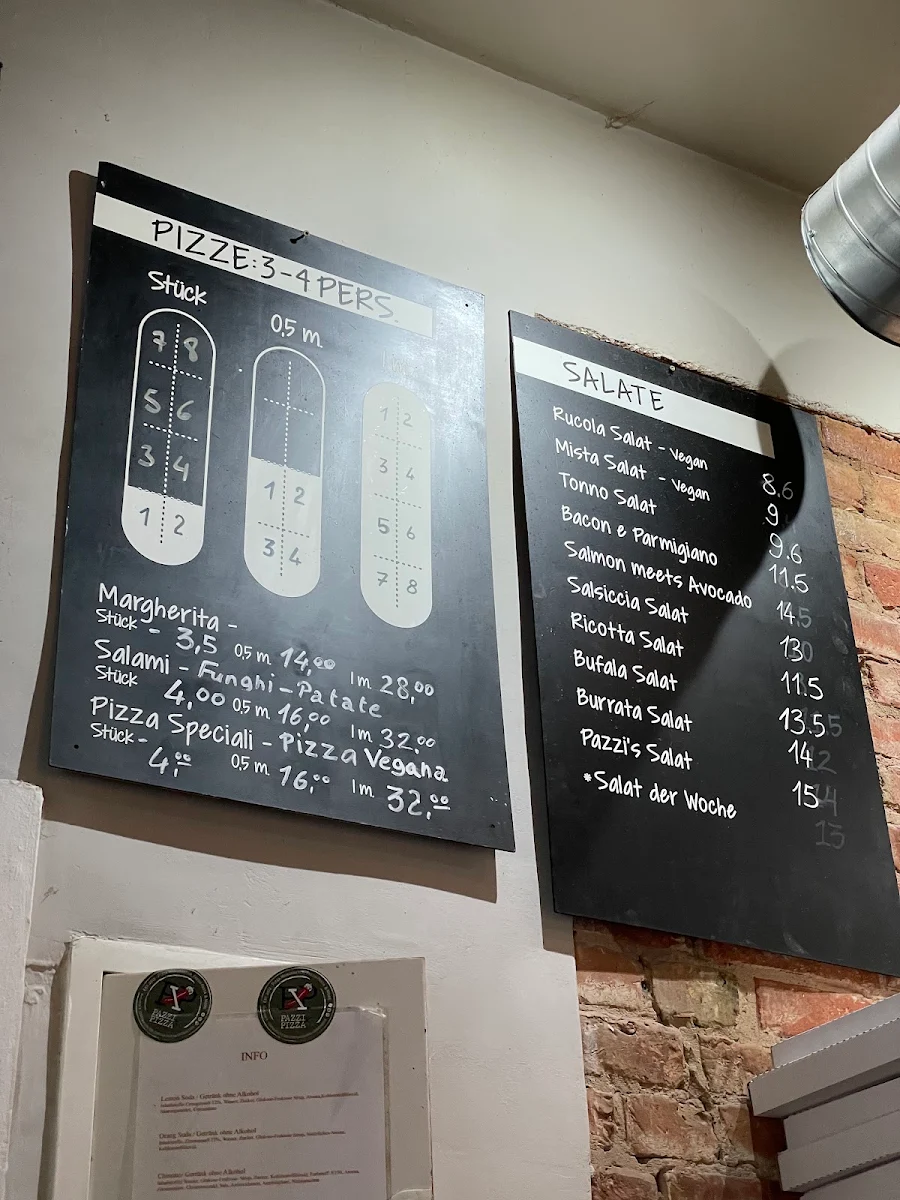 PIZZE: 3-4 PERS.
Stück
0,5 m.
7 8
5 6
3 4
1 2
1 2
3 4
1 2
3 4
5 6
7 8
Margherita -
Stück - 3,5 0,5 m. 14,00 1m 28,00
Salami - Funghi - Patate
Stück 4,00 0,5 m. 16,00 1m 32,00
Pizza Speciali - Pizza Vegana
Stück - 4,00 0,5 m. 16,00 1m. 32,00
SALATE
Rucola Salat - Vegan 8.6
Mista Salat - Vegan 9
Tonno Salat 9.6
Bacon e Parmigiano 11.5
Salmon meets Avocado 14.5
Salsiccia Salat 13
Ricotta Salat 11.5
Bufala Salat 13.5
Burrata Salat 14
Pazzi's Salat 15
*Salat der Woche
PAZZI
PIZZA
PAZZI
PIZZA
INFO
Lemon Soda / Getränk ohne Alkohol
Orang Soda / Getränk ohne Alkohol
Chinotto / Getränk ohne Alkohol